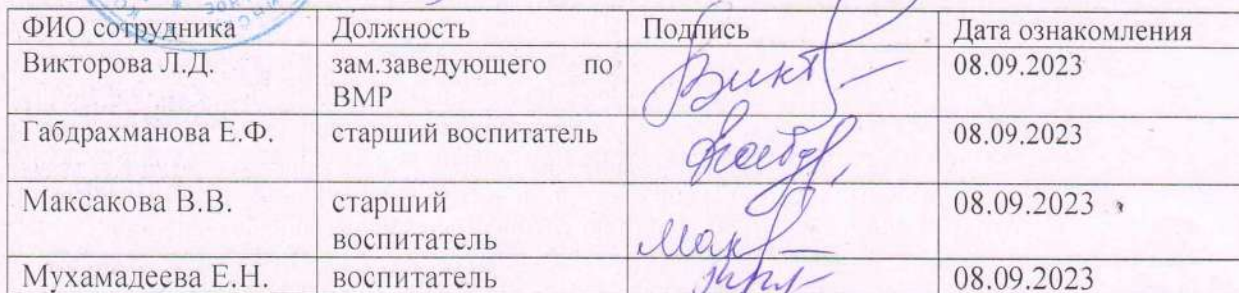 ФИО сотрудника Должность Подпись Дата ознакомления
Викторова Л.Д. зам.заведующего по ВМР Викт 08.09.2023
Габдрахманова Е.Ф. старший воспитатель 08.09.2023
Максакова В.В. старший воспитатель Мак 08.09.2023
Мухамадеева Е.Н. воспитатель 08.09.2023